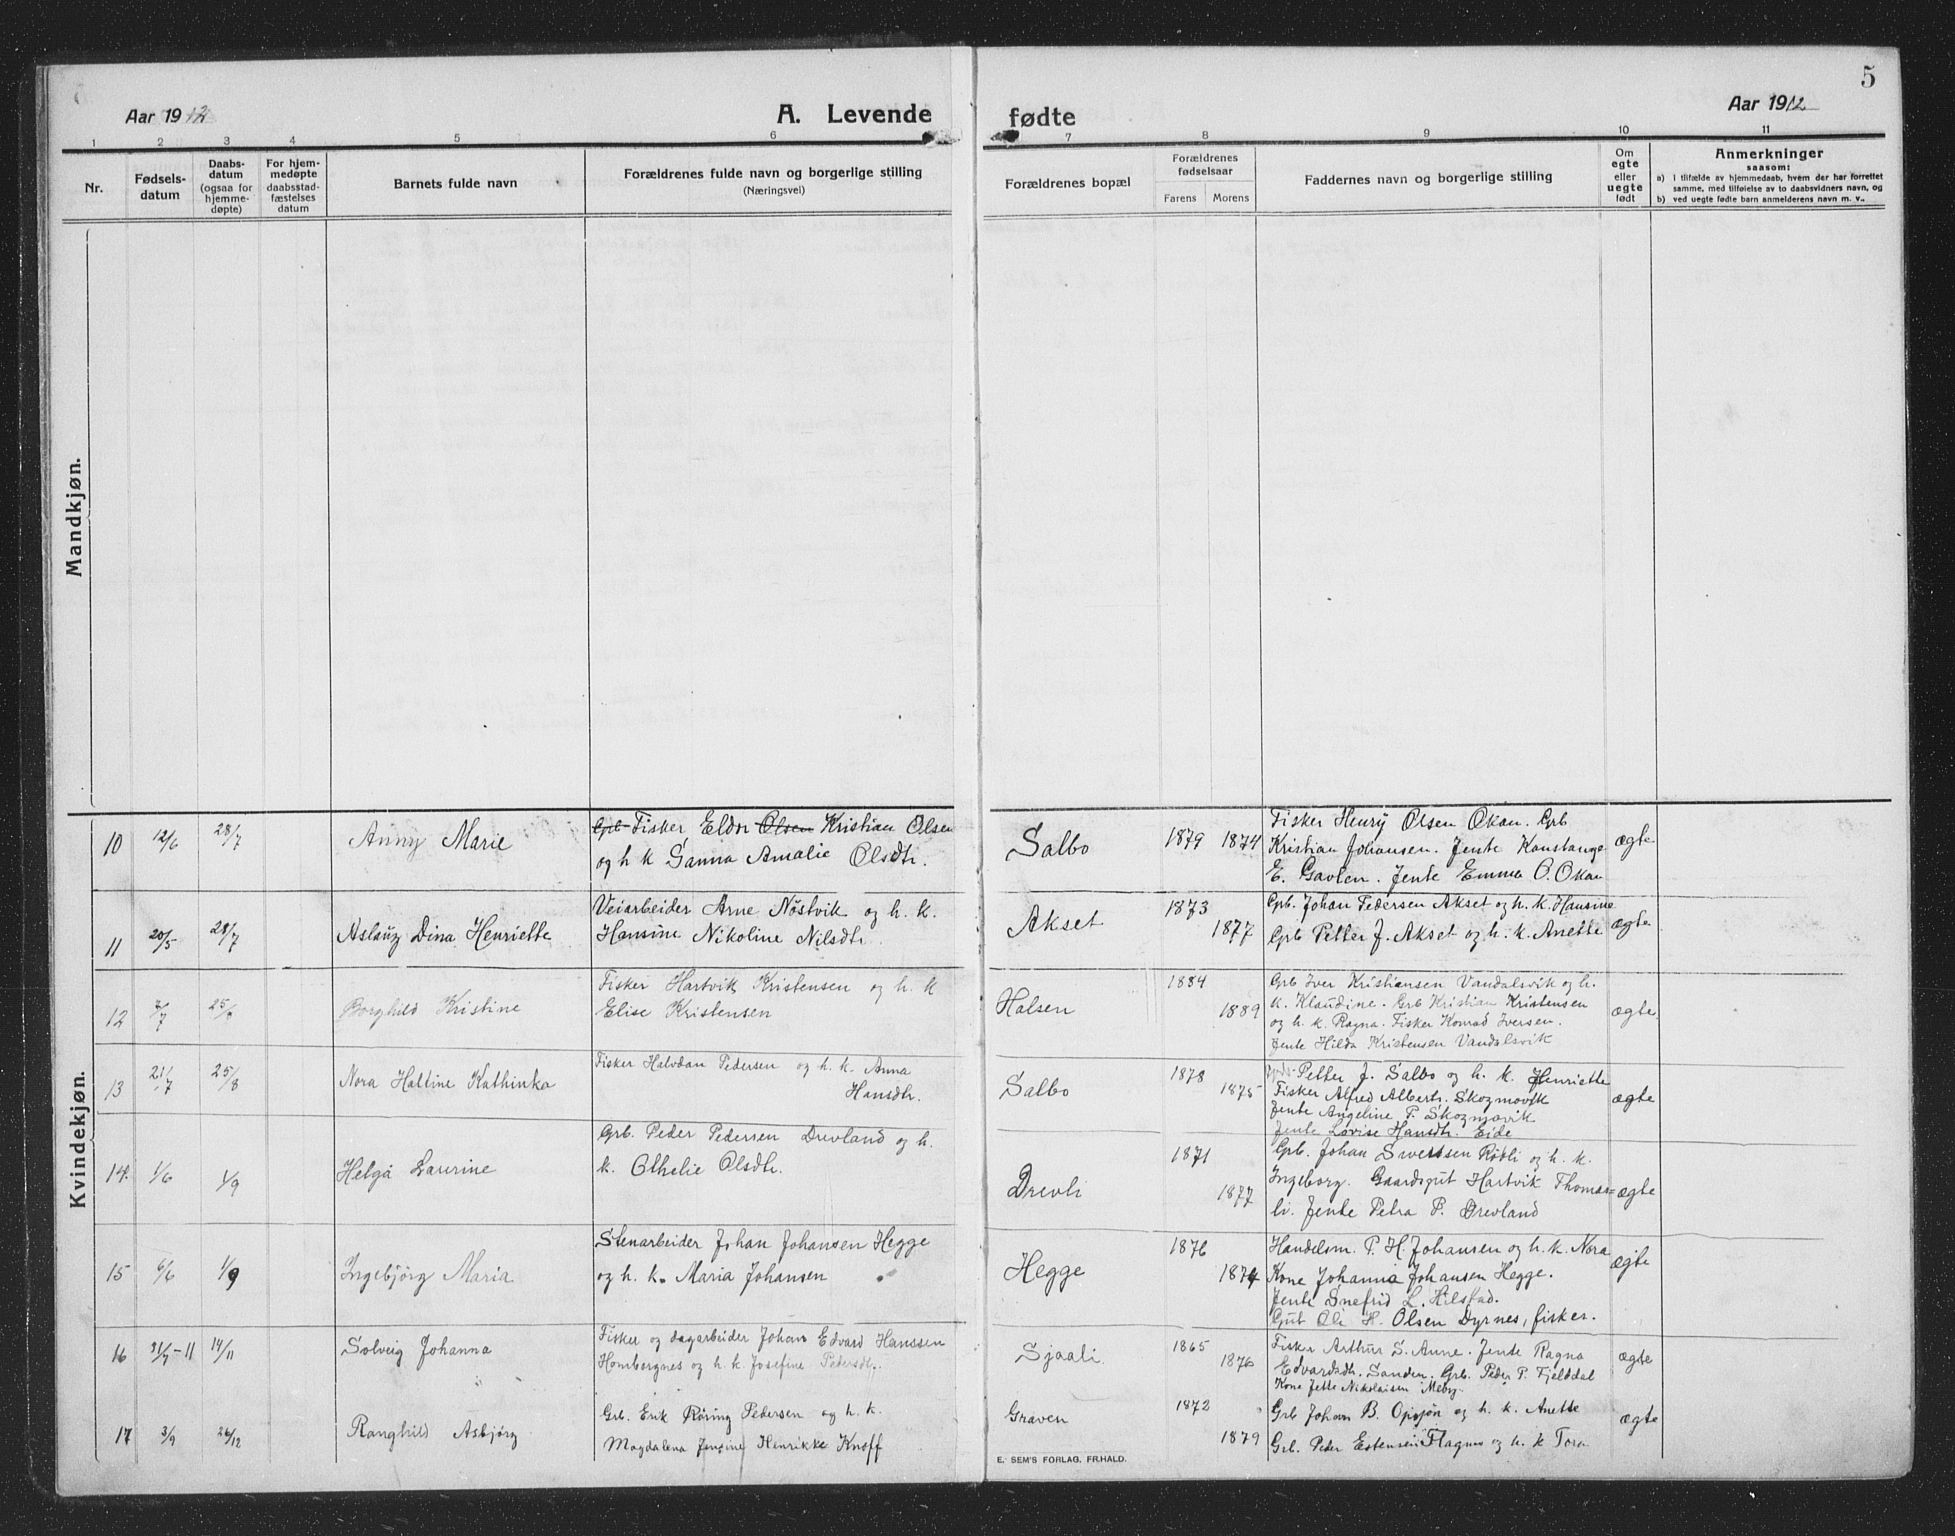 Aar 1912
A. Levende
fødte
Aar 1912
5
1 2 3 4 5 6 7 8 9 10 11
Nr.
Fødsels-
datum
Daabs-
datum
(ogsaa for
hjemme-
døpte)
For hjem-
medøpte
daabsstad-
fæstelses
datum
Barnets fulde navn
Forældrenes fulde navn og borgerlige stilling
(Næringsvei)
Forældrenes bopæl
Forældrenes
fødselsaar
Farens Morens
Faddernes navn og borgerlige stilling
Om
egte
eller
uegte
født
Anmerkninger
saasom:
a) i tilfælde av hjemmedaab, hvem der har forrettet
samme, med tilføielse av to daabsvidners navn, og
b) ved uegte fødte barn anmelderens navn m. v..
Mandkjøn.
Kvindekjøn.
10 12/6 28/7
Anny Marie
Grb Fisker Eldor Olsen Kristian Olsen
og h k Sanna Amalie Olsdtr.
Salbo
1879 1874
Fisker Henry Olsen Okan. Grb
Kristian Johansen. Jente Konstanse
E. Gavlen. Jente Emma O. Okan
ægte
11 20/5 28/7
Aslaug Dina Henriette
Veiarbeider Arne Nøstvik og h. k.
Hansine Nikoline Nilsdtr.
Akset
1873
1877
Grb. Johan Pedersen Akset og h. k. Hansine
Grb Petter J. Akset og h. k. Anette
ægte
12 7/7
Borghild Kristine
Fisker Hartvik Kristensen og h. k
Elise Kristensen
Halsen
1884
1889
Grb Iver Kristiansen Vandalsvik og h.
k. Klaudine. Grb Kristian Kristensen
og h. k. Ragna. Fisker Konrad Iversen.
Jente Hilda Kristensen Vandalsvik
ægte
13 21/7 25/8
Nora Hattine Kathinka
Fisker Halvdan Pedersen og h. k. Anna
Hansdtr.
Salbo
1878
1875
Petter J. Salbo og h. k. Henriette
Fisker Alfred Albertr. Skogmovik
Jente Angeline P. Skogmovik
Jente Lovise Hansdtr. Eide
ægte
14. 1/6 1/9
Helga Laurine
Grb. Peder Pedersen Drevland og h.
k. Othelie Olsdtr.
Drevli
1871
1877
Grb. Johan Sivertsen Røtli og h. k.
Ingeborg. Gaardsgut Hartvik Thomas=
li. Jente Petra P. Drevland
ægte
15 6/6 1/9
Ingebjørg Maria
Stenarbeider Johan Johansen Hegge
og h. k. Maria Johansen
Hegge
1876
1874
Handelsm. P. H. Johansen og h. k. Nora
Kone Johanna Johansen Hegge.
Jente Snefrid L. Hilstad.
Gut Ole H. Olsen Dyrnes, fisker.
ægte
16 31/7-11 14/11
Solveig Johanna
Fisker og dagarbeider Johan Edvard Hanssen
Hombergnes og h. k. Josefine Pedersdtr.
Sjaali
1865
1876
Fisker Arthur S. Aune. Jente Ragna
Edvardsdtr. Sanden. Grb. Peder P. Fjelddal
Kone Jette Nikolaisen Meby.
ægte
17 3/9 26/12
Ranghild Asbjørg
Grb. Erik Røring Pedersen og h. k.
Magdalena Jensine Henrikke Knoff
Graven
1872
1879
Grb Johan B. Opsjøn og h. k. Anette
Grb. Peder Estensen Flagnes og h. k Tora
ægte
E. SEM'S FORLAG, FR.HALD.